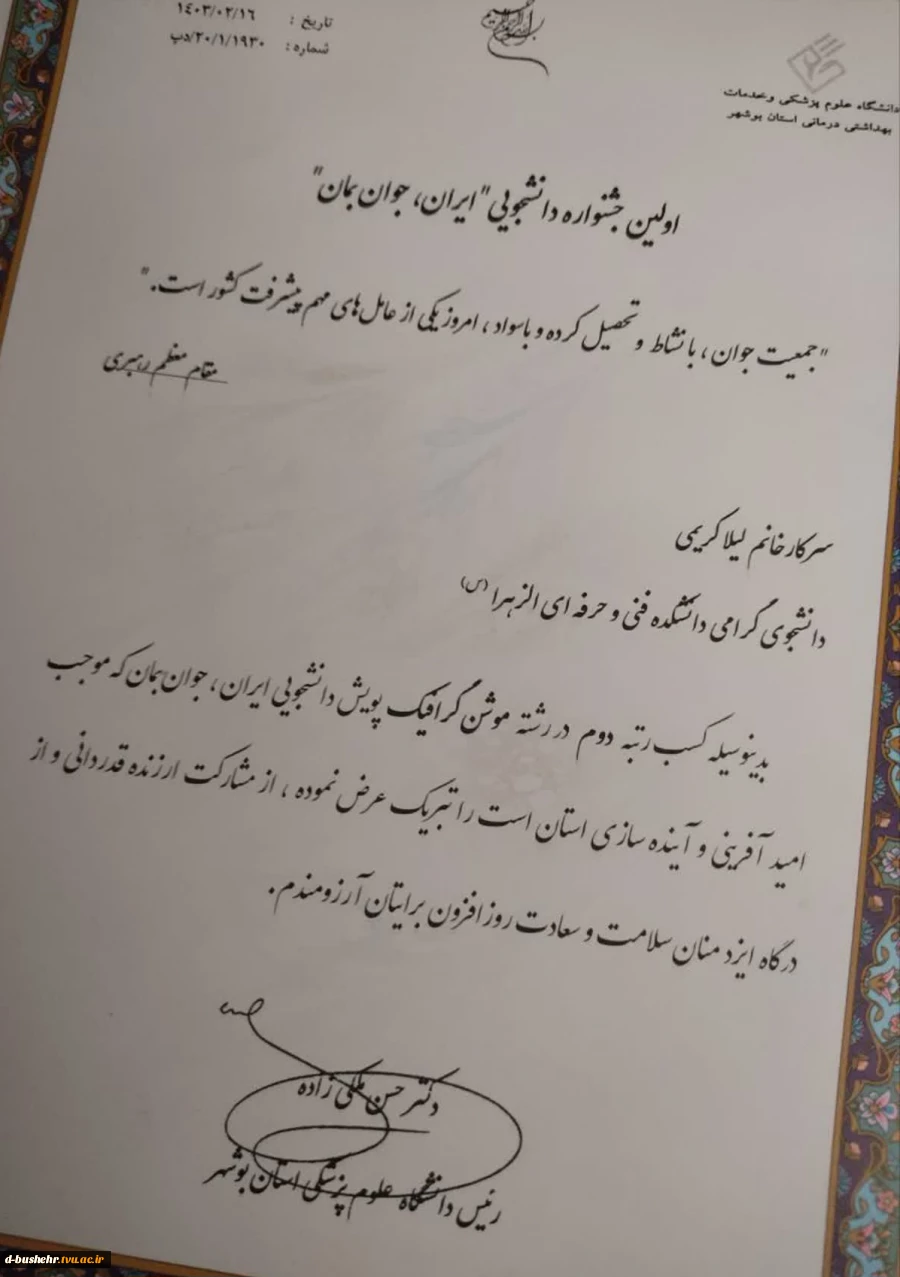 بسم الله الرحمن الرحیم
تاریخ : ۱۴۰۳/۰۲/۱۶
شماره : ۲۰/۱/۱۹۳۰/دپ
دانشگاه علوم پزشکی و خدمات
بهداشتی درمانی استان بوشهر
اولین جشنواره دانشجویی "ایران، جوان بمان"
"جمعیت جوان، با نشاط و تحصیل کرده و باسواد، امروز یکی از عامل‌های مهم پیشرفت کشور است."
مقام معظم رهبری
سرکار خانم لیلا کریمی
دانشجوی گرامی دانشکده فنی و حرفه ای الزهرا (س)
بدینوسیله کسب رتبه دوم در رشته موشن گرافیک پویش دانشجویی ایران، جوان بمان که موجب
امید آفرینی و آینده سازی استان است را تبریک عرض نموده، از مشارکت ارزنده قدردانی و از
درگاه ایزد منان سلامت و سعادت روز افزون برایتان آرزومندم.
دکتر حسن ملکی زاده
رئیس دانشگاه علوم پزشکی استان بوشهر
d-bushehr.tvu.ac.ir